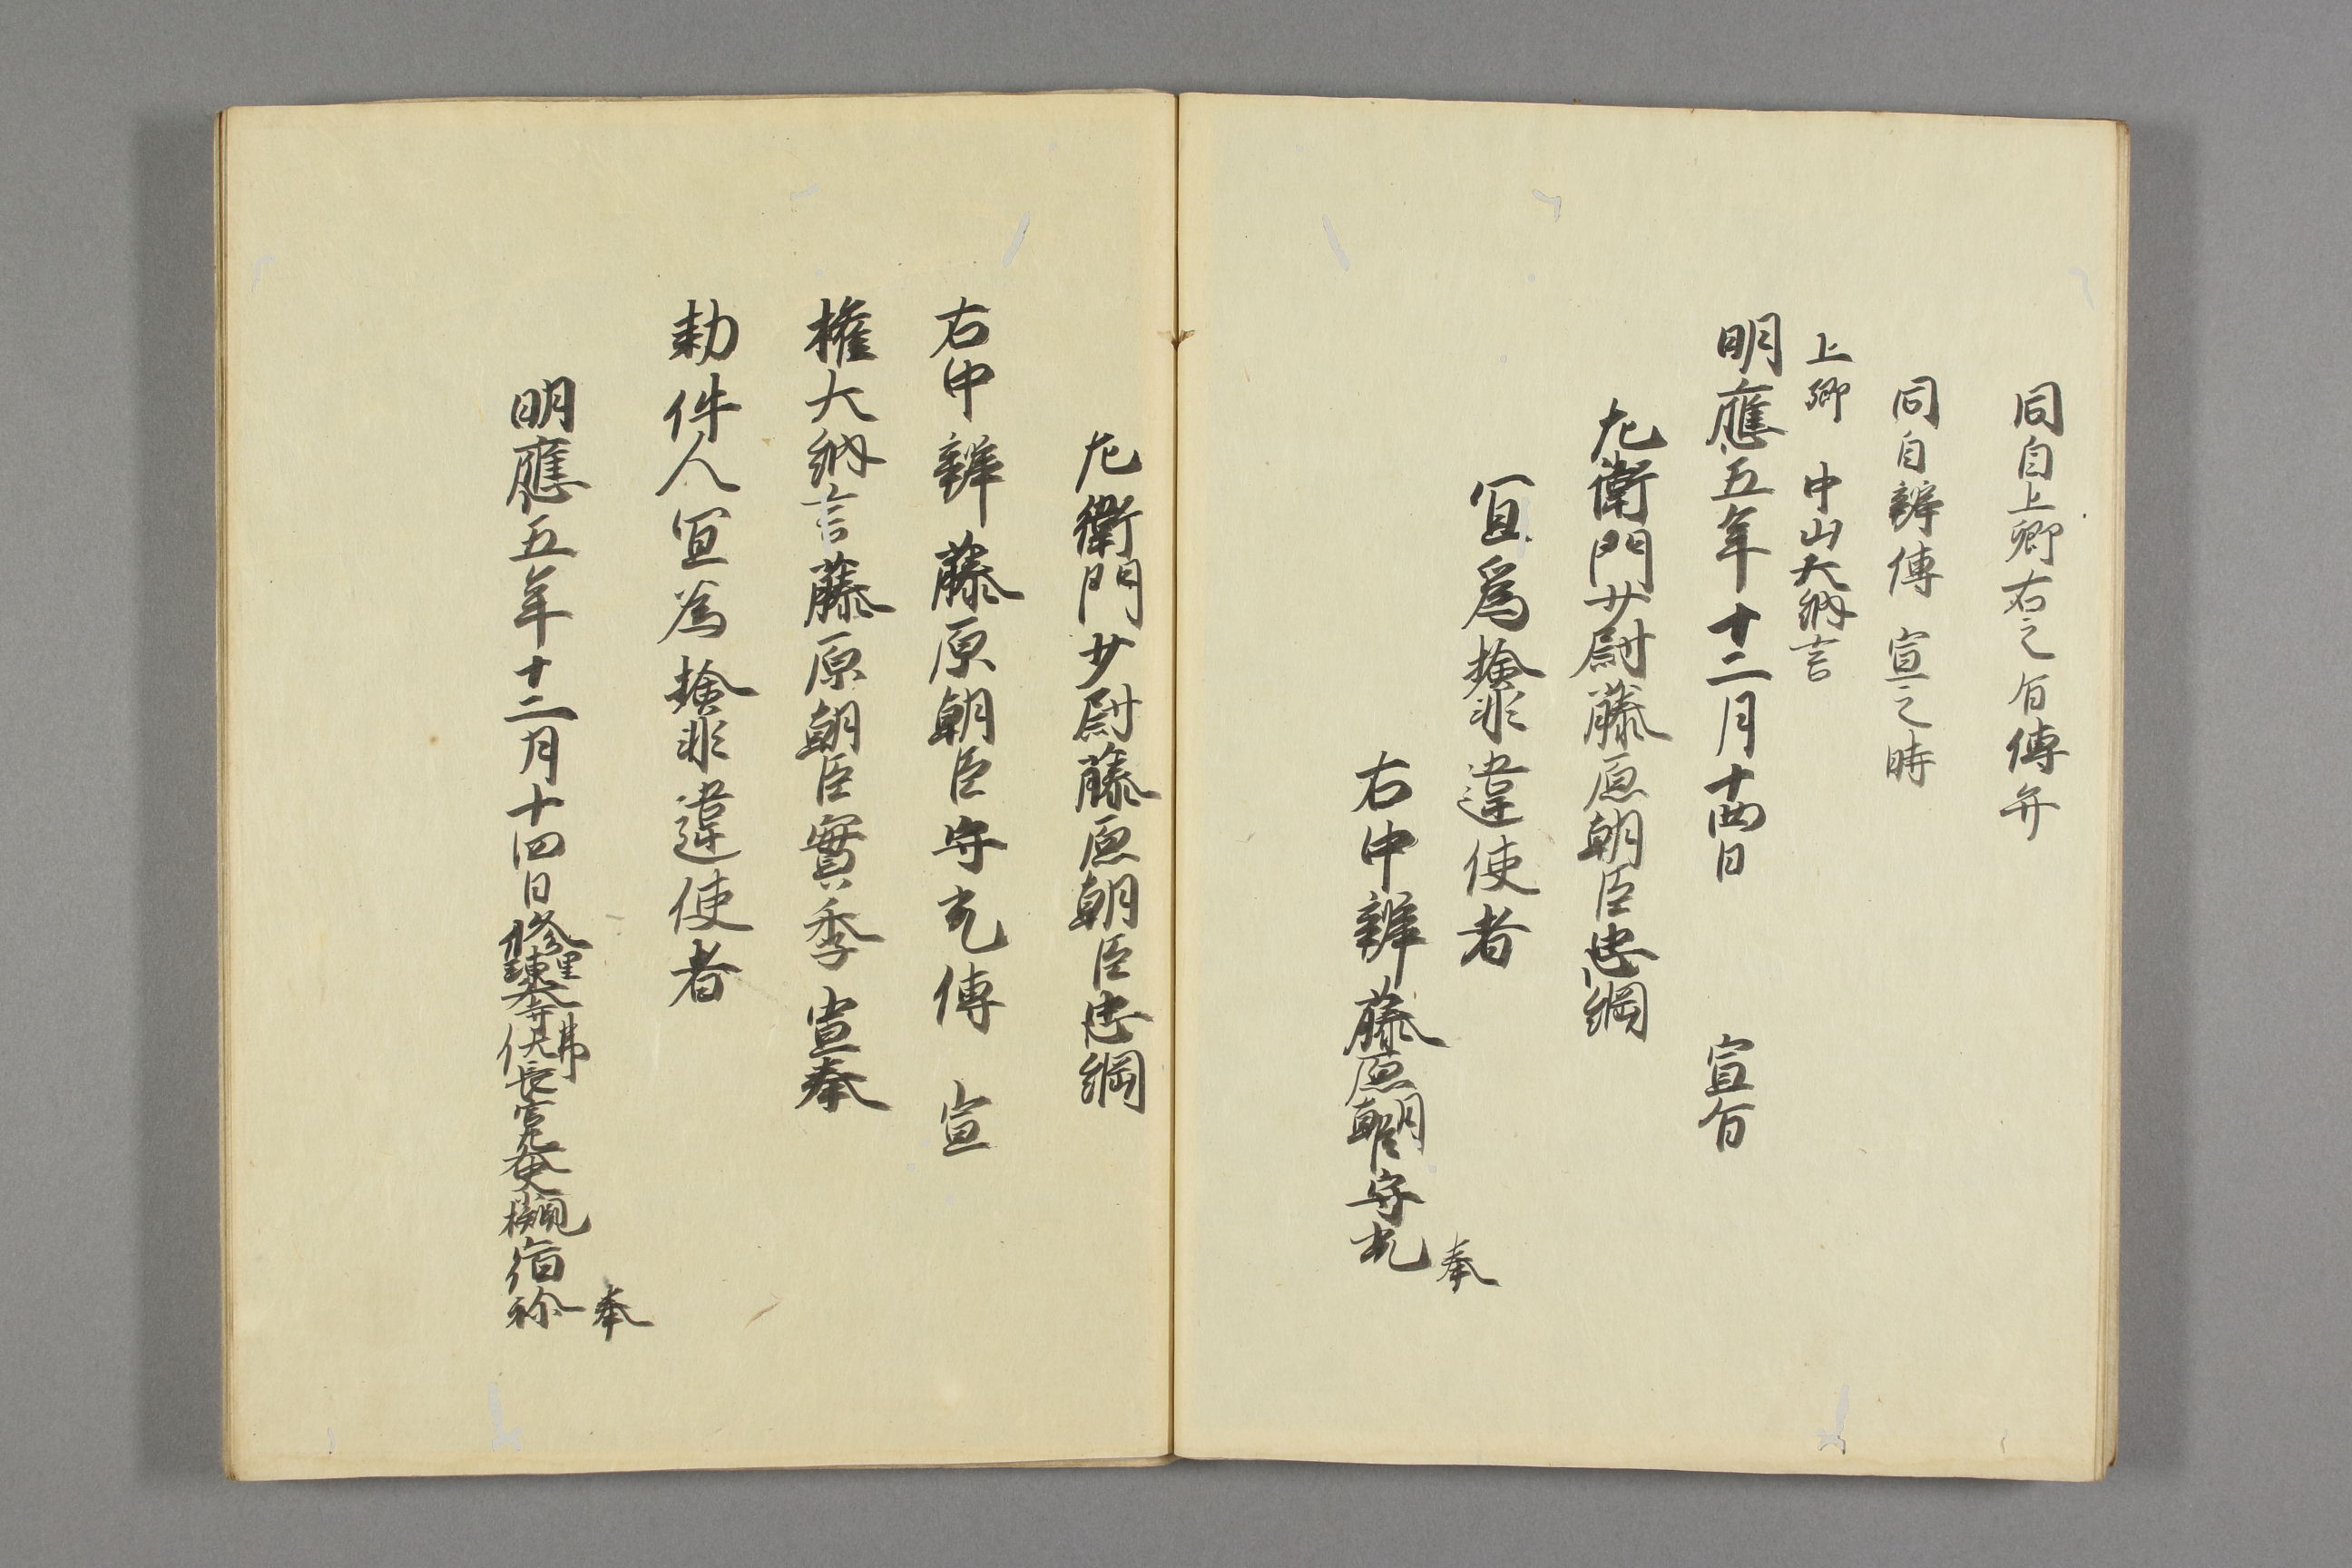 同自上卿右之百傳弁
同自辨傳 宣之時
上卿 中山大納言
明應五年十二月十四日 宣旨
左衛門少尉藤原朝臣忠綱
宜爲撿非違使者
右中辨藤原朝臣守光 奉
左衛門少尉藤原朝臣忠綱
右中辨藤原朝臣守光傳 宣
權大納言藤原朝臣實季宣奉
勅件人宜為撿非違使者
明應五年十二月十四日修理東大寺大佛長官 宿祢 奉